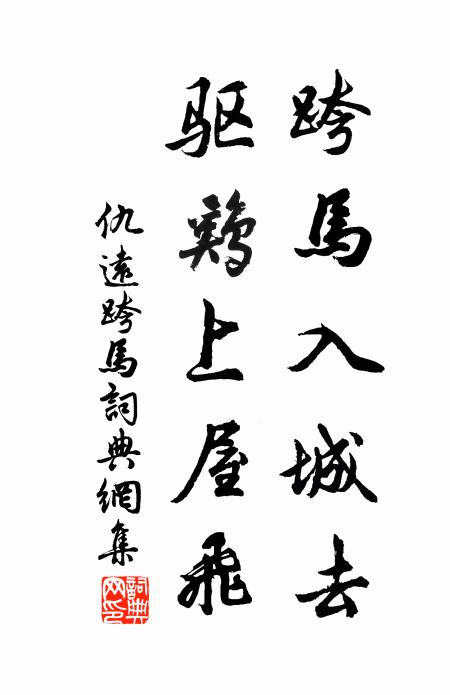 跨馬入城去
驱鷄上屋飛
仇遠跨馬詞典網集
詞典網印